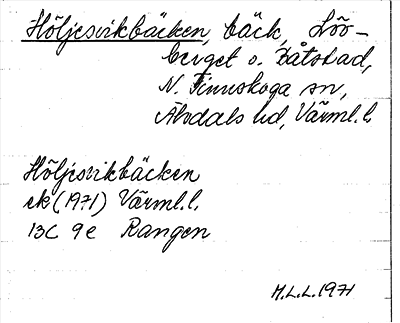 Höljesvikbäcken, bäck, Löv-
berget o. Båtstad,
N. Finnskoga sn,
Älvdals hd, Värml.l.
Höljesvikbäcken
ek (1971) Värml.l.
13C 9e Rangen
M.L.L. 1971